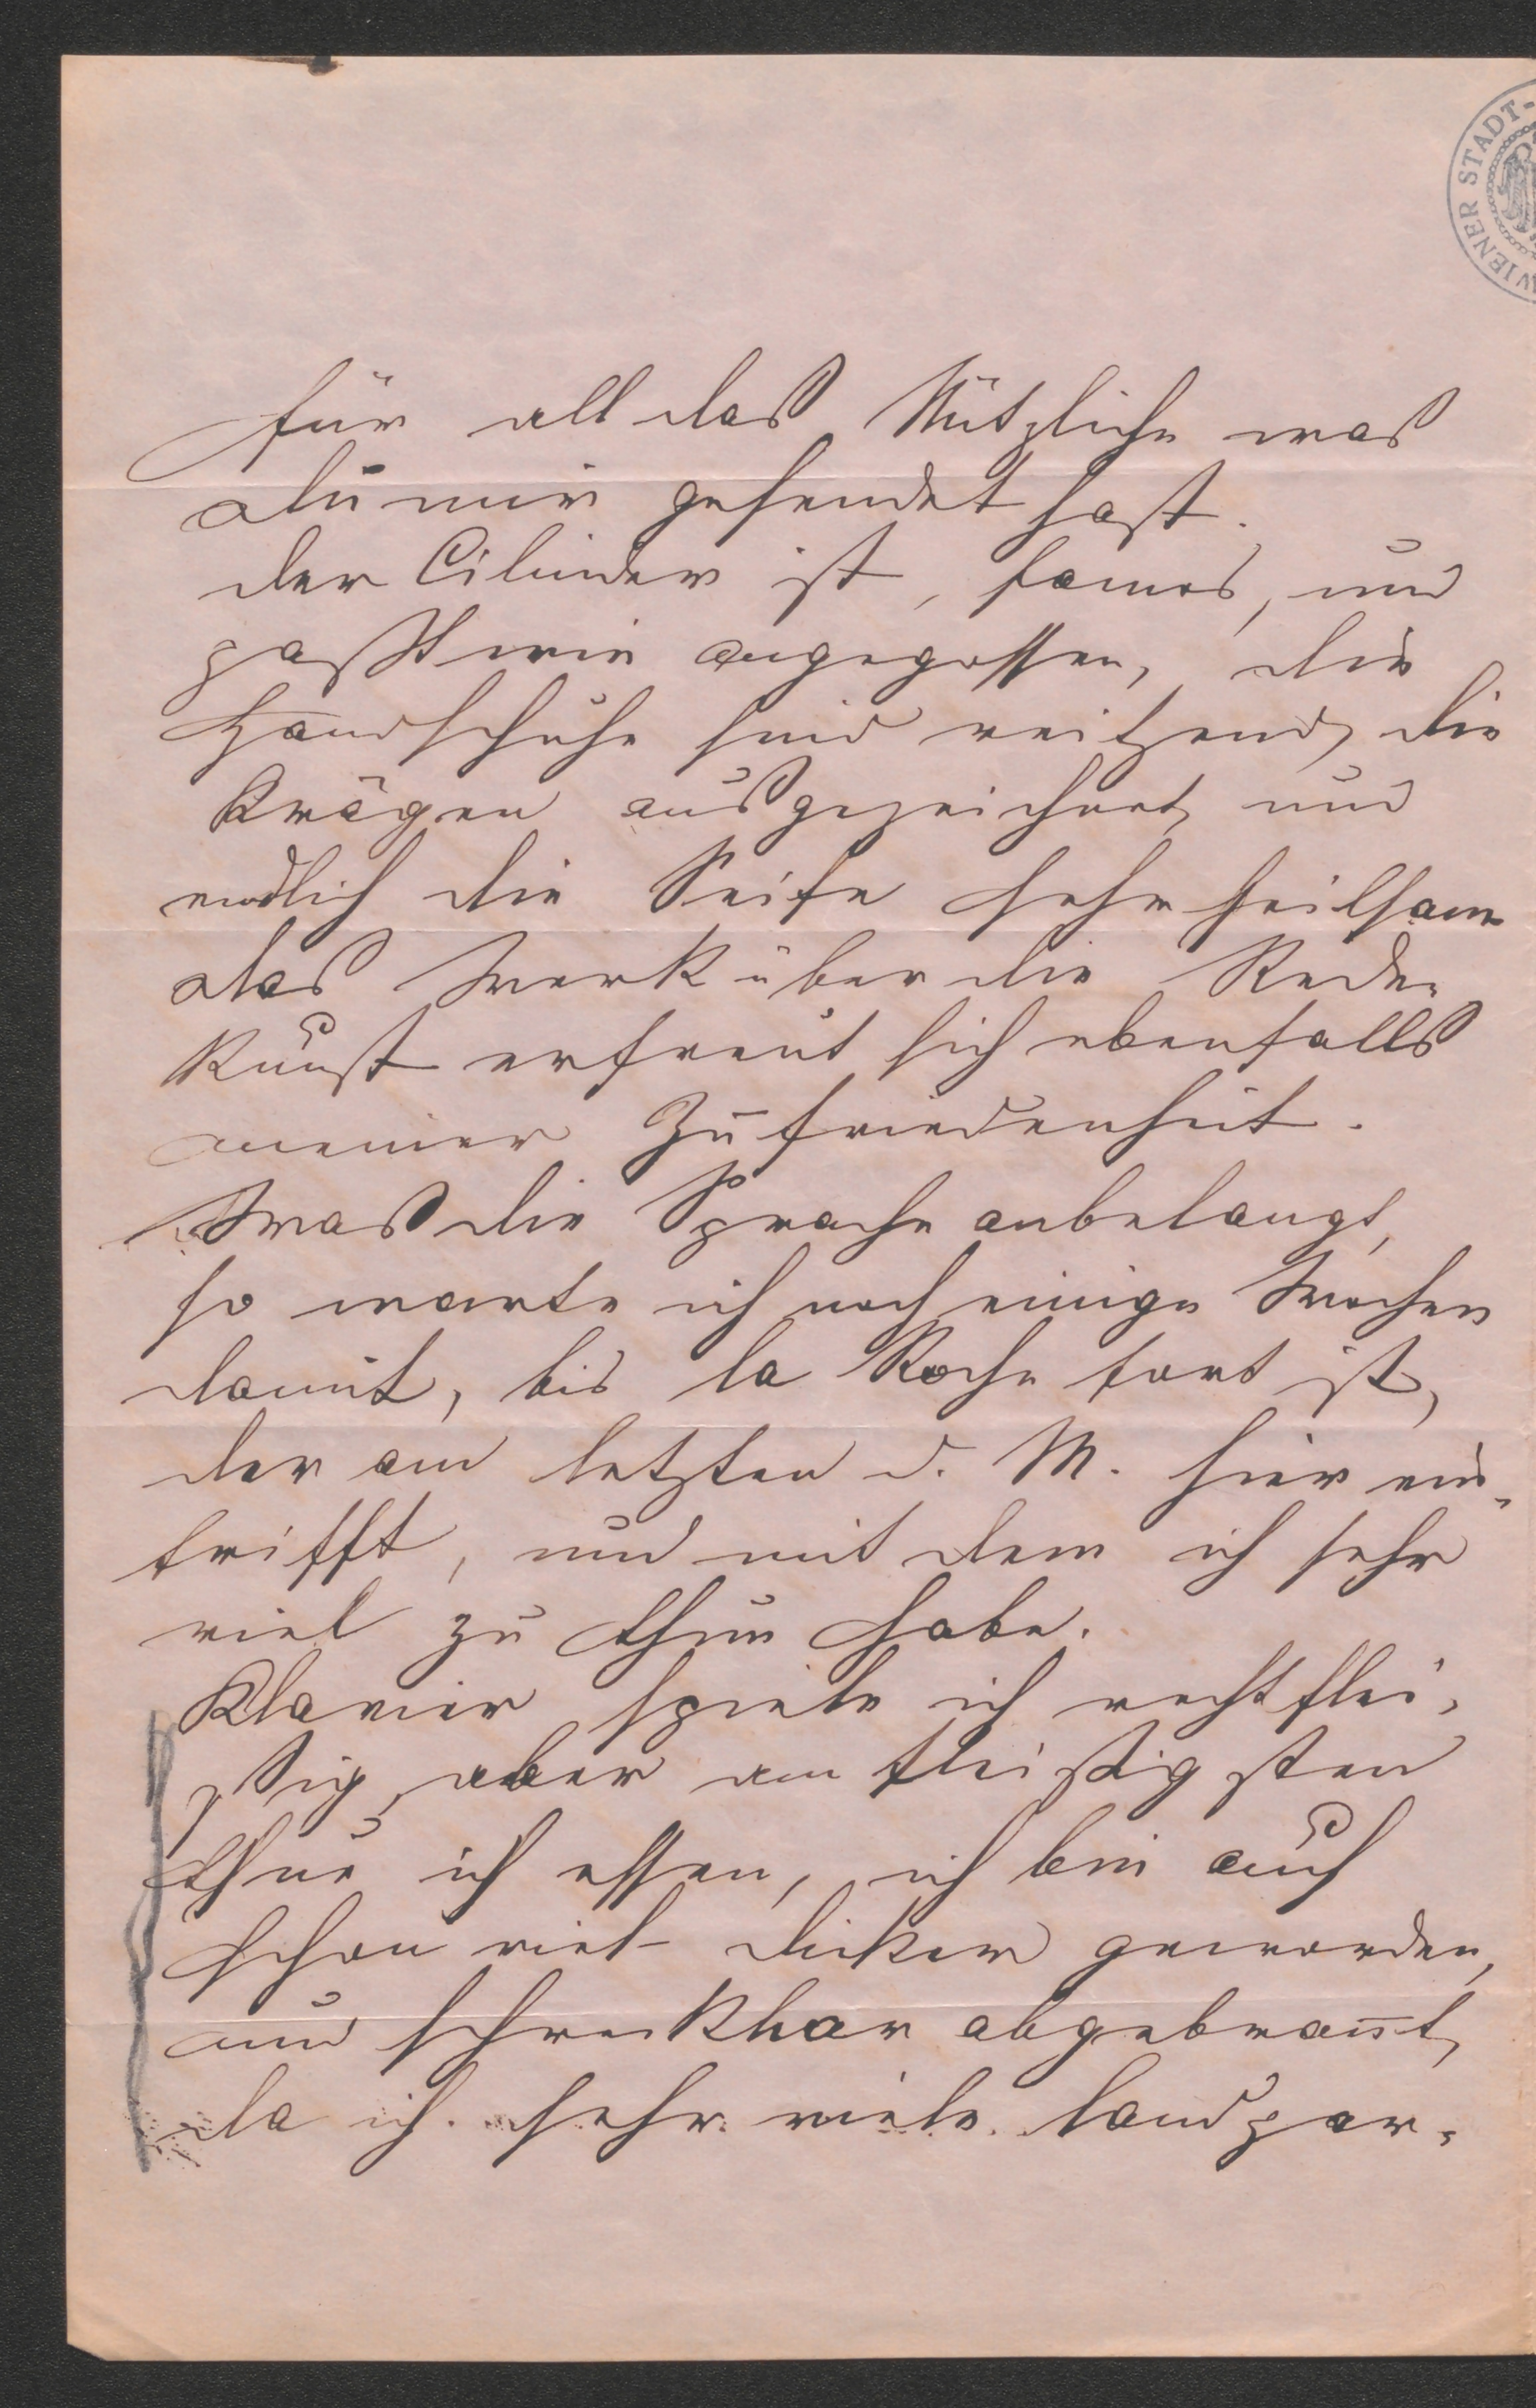 WIENER STADT-
für all das Nützliche was
du mir gesendet hast.
der Cilinder ist, famos, und
paßt wie angegossen, die
Handschuhe sind reitzend, die
Krägen ausgezeichnet, und
endlich die Seife sehr heilsam
das Werk über die Rede-
kunst erfreut sich ebenfalls
meiner Zufriedenheit.
Was die Sprache anbelangt,
so warte ich noch einige Wochen
damit, bis la Roche fort ist,
der am letzten d. M. hier ein-
trifft, und mit dem ich sehr
viel zu thun habe.
Klavier spiele ich recht flei-
ßig, aber am fleißigsten
thue ich essen, ich bin auch
schon viel dicker geworden,
und schrecklbar abgebrannt,
da ich sehr viele landpar-